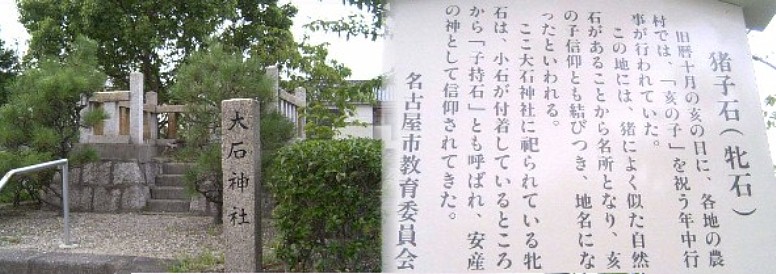 大石神社
猪子石(牝石)
旧暦十月の亥の日に、各地の農
村では、「亥の子」を祝う年中行
事が行われていた。
この地には、猪によく似た自然
石があることから名所となり、亥
の子信仰とも結びつき、地名にな
ったといわれる。
ここ大石神社に祀られている牝
石は、小石が付着しているところ
から「子持石」とも呼ばれ、安産
の神として信仰されてきた。
名古屋市教育委員会